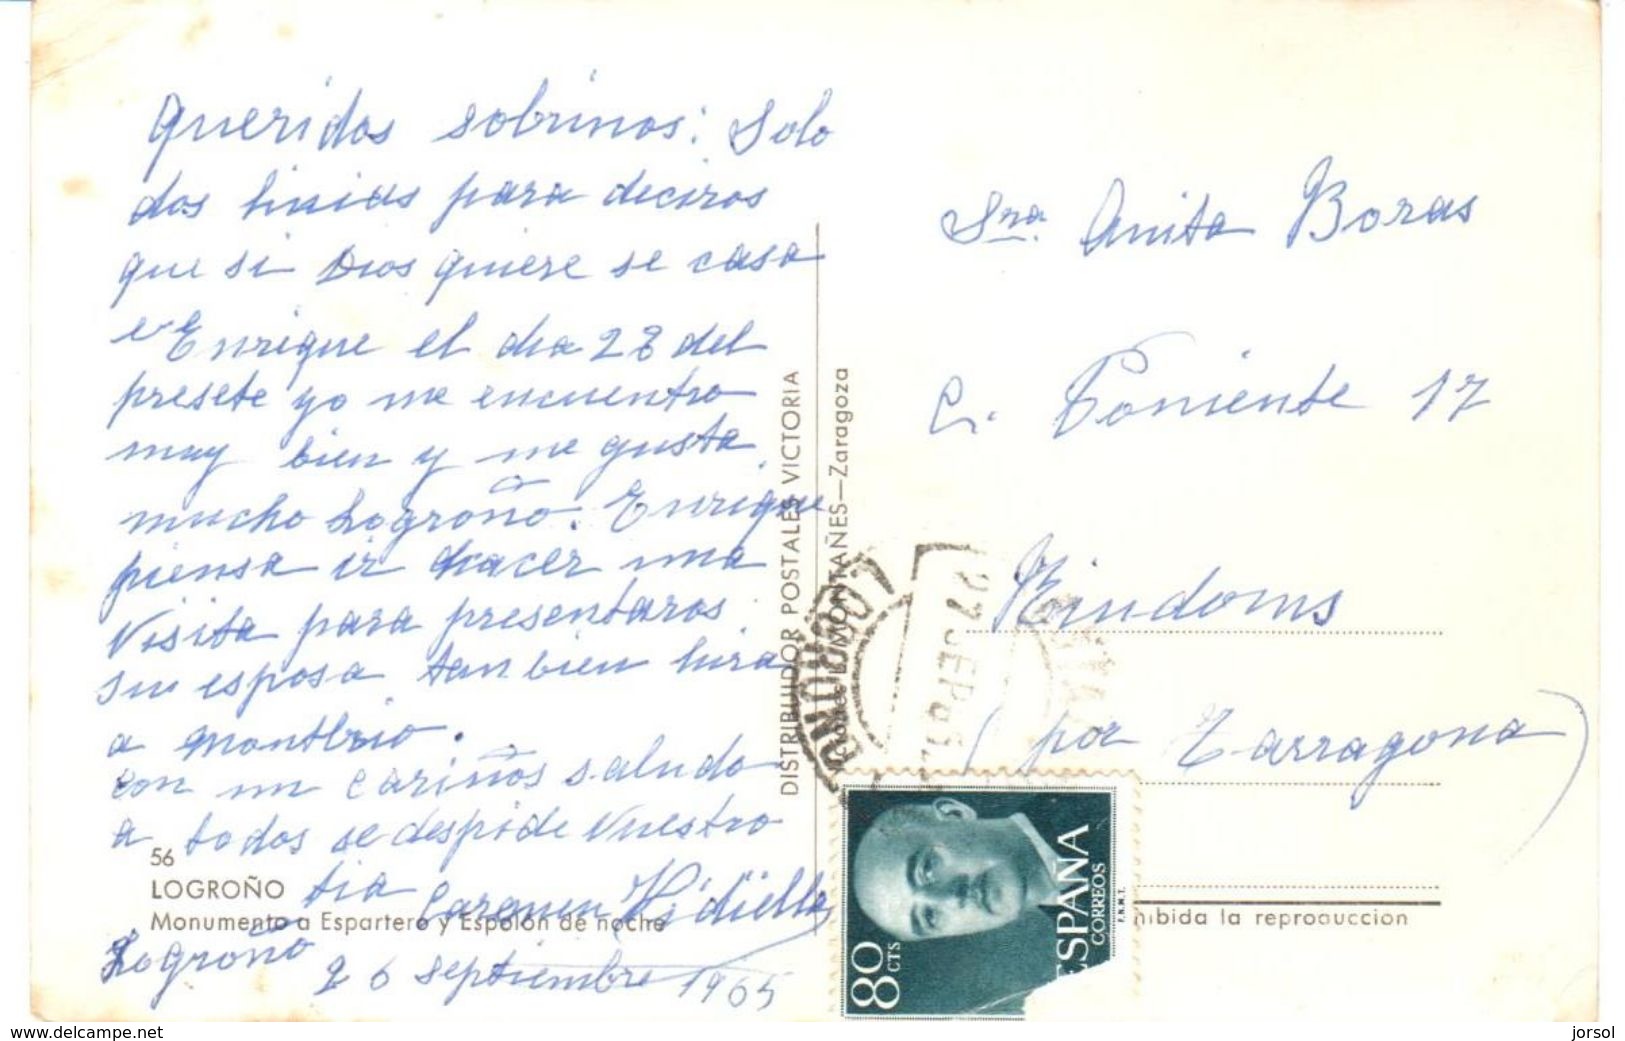 Queridos sobrinos: Solo
dos linias para deciros
que si Dios quiere se casa
Enrique el dia 28 del
presete yo me encuentro
muy bien y me gusta
mucho Logroño. Enrique
piensa ir hacer una
Visita para presentaros
su esposa tanbien hira
a Montbrio.
con un cariños saludo
a todos se despide vuestro
tia Carmen
Logroño
26 septiembre 1965
56
LOGROÑO
Monumento a Espartero y Espolón de noche
DISTRIBUIDOR POSTALES VICTORIA
MONTAÑES—Zaragoza
Sra. Anita Boras
C. Poniente 17
Rindoms
(por Tarragona)
LOGROÑO
27 SEP 65
80 CTS
ESPAÑA
CORREOS
F.N.M.T.
hibida la reproduccion
www.delcampe.net
jorsol